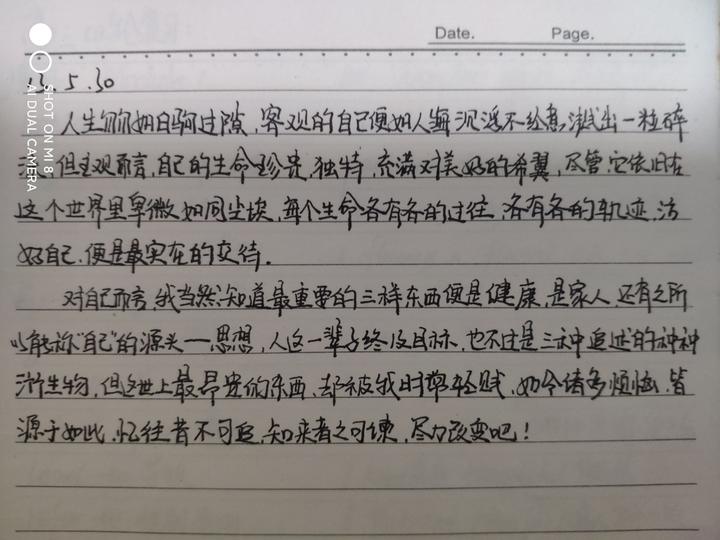 Date. Page.
13.5.30
人生匆匆如白驹过隙,客观的自己便如人海沉浮不经意溅出一粒碎
沫,但主观而言,自己的生命珍贵,独特,充满对美好的希翼,尽管它依旧在
这个世界里卑微如同尘埃,每个生命各有各的过往,各有各的轨迹,活
好自己,便是最实在的交待。
对自己而言,我当然知道最重要的三样东西便是健康,是家人,还有之所
以能称"自己"的源头——思想,人这一辈子终及目标,也不过是三种追述的种种
衍生物,但这世上最昂贵的东西,却被我时常轻贱,如今诸多烦恼,皆
源于如此,忆往昔不可追,知来者之可谏,尽力改变吧!
SHOT ON MI 8
AI DUAL CAMERA